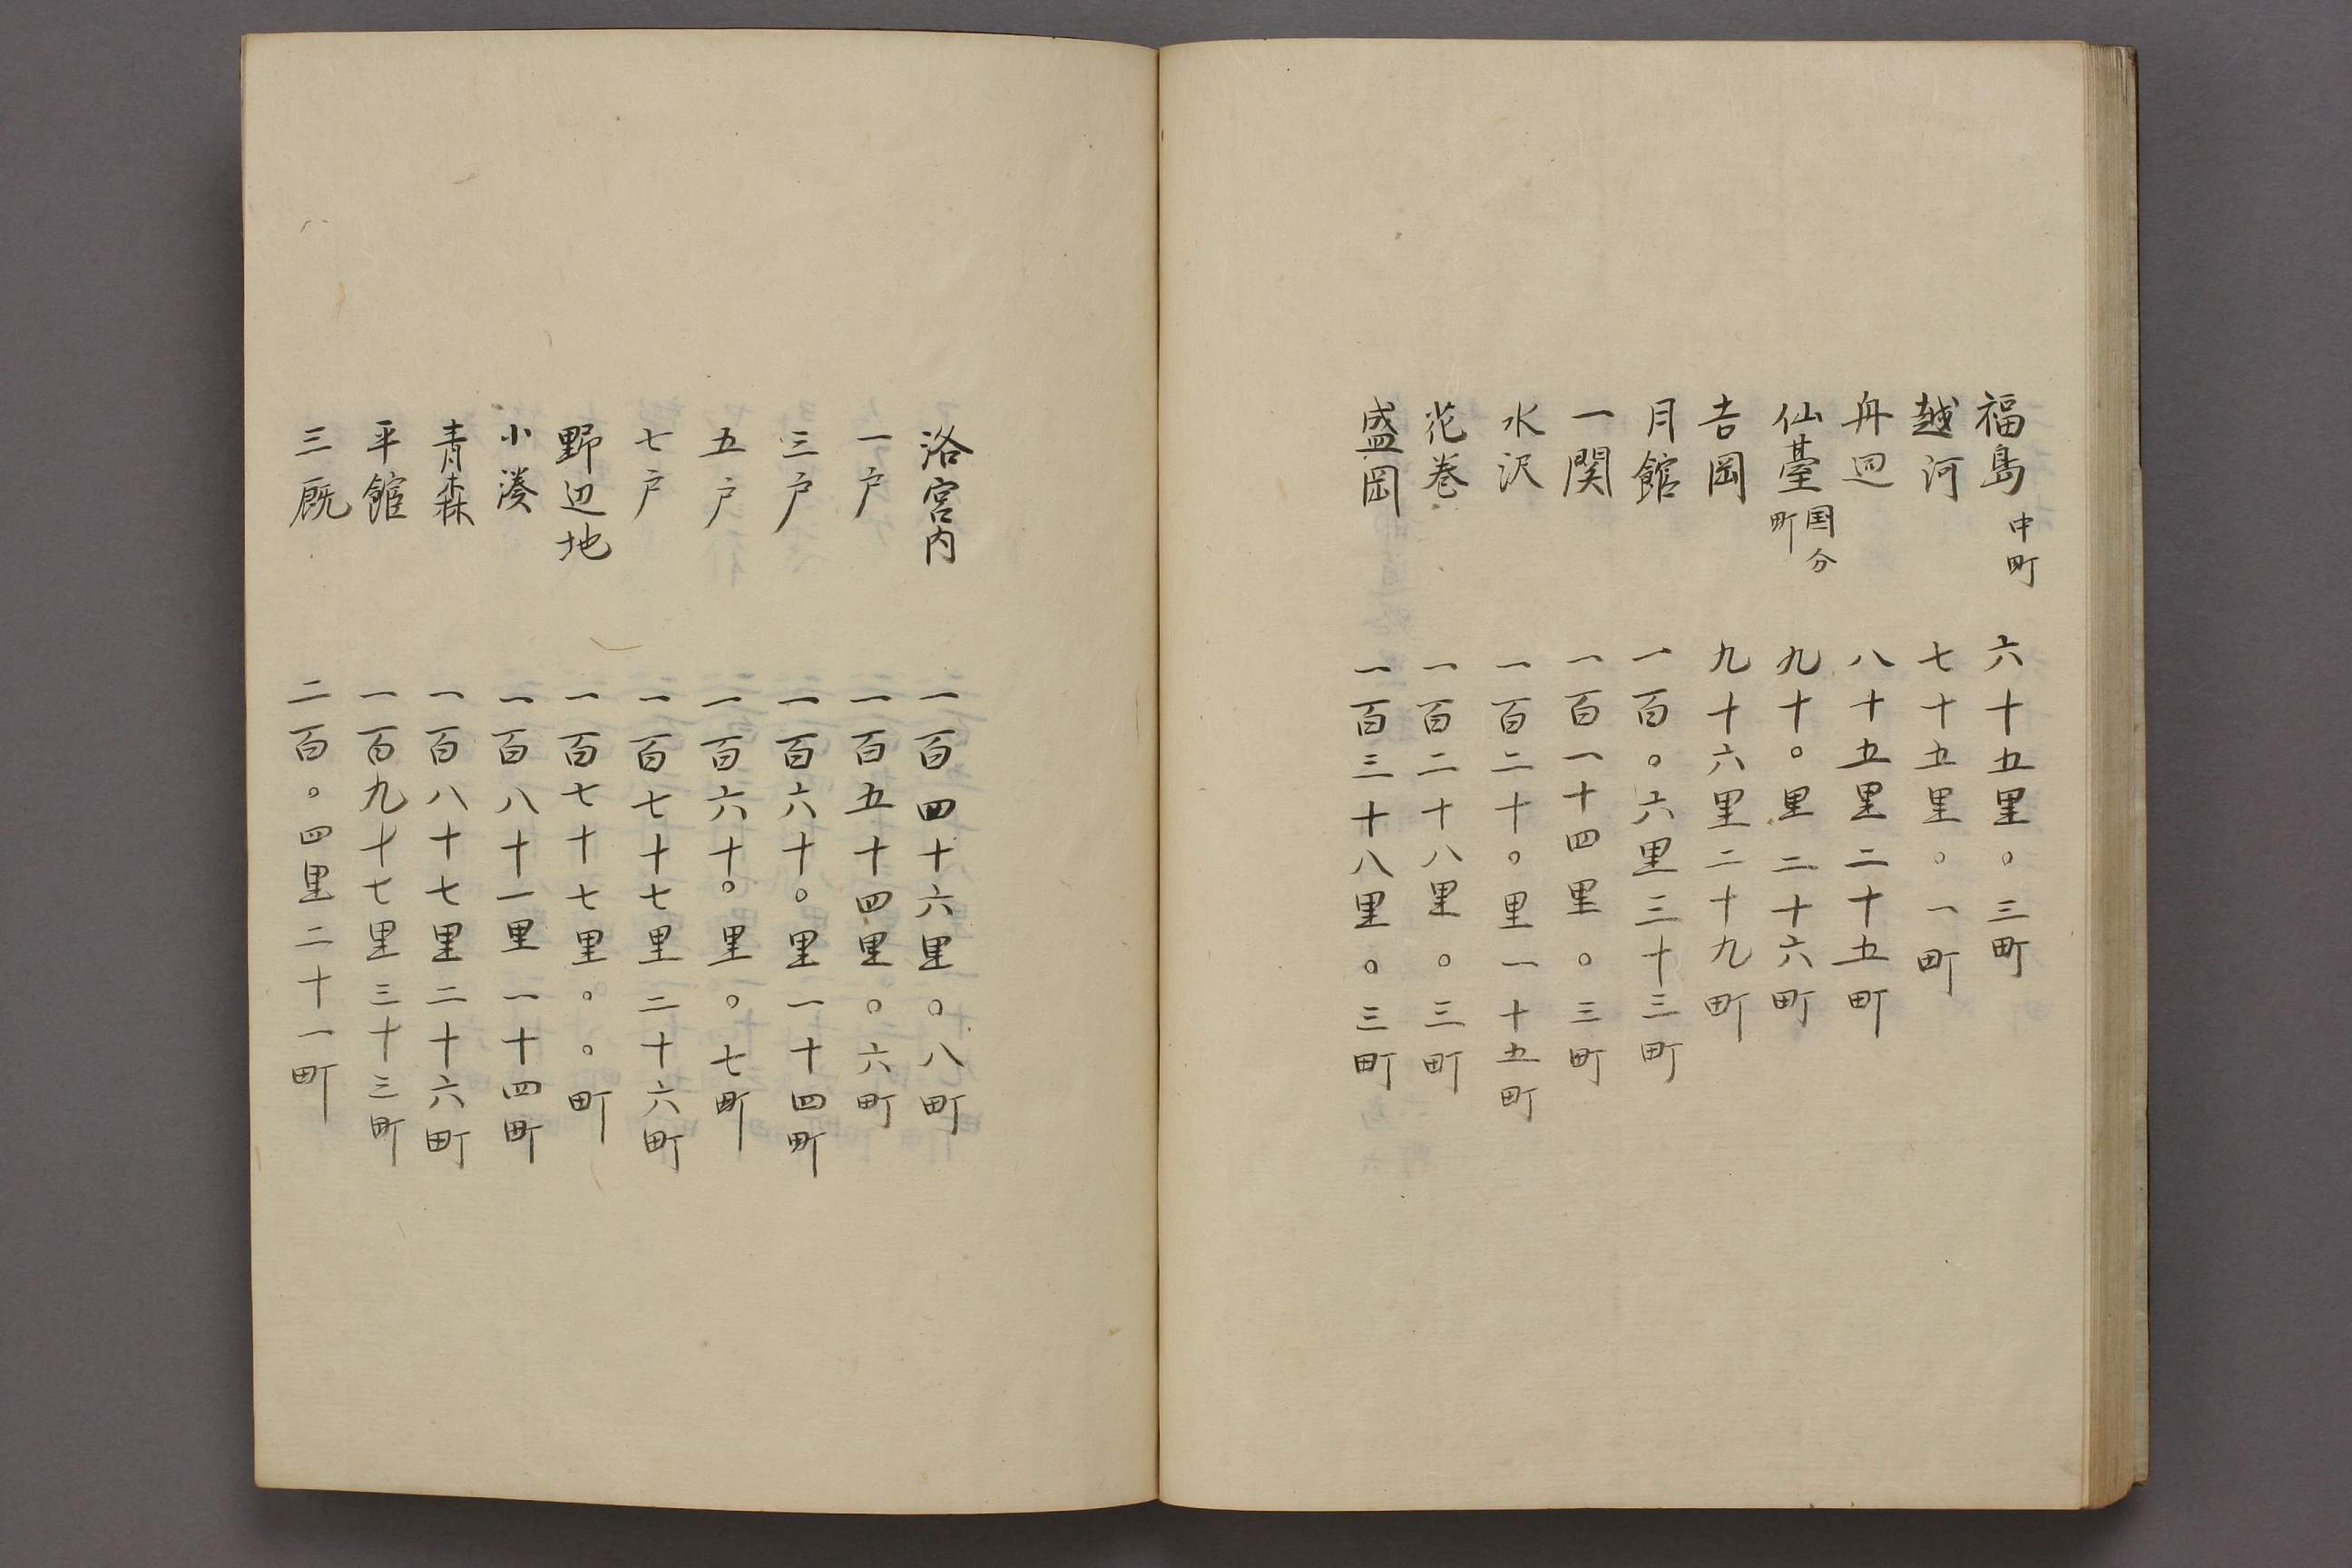 福島 中町 六十五里〇三町
越河 七十五里〇一町
舟迴 八十五里二十五町
仙臺 国分町 九十〇里二十六町
吉岡 九十六里二十九町
月館 一百〇六里三十三町
一関 一百一十四里〇三町
水沢 一百二十〇里一十五町
花巻 一百二十八里〇三町
盛岡 一百三十八里〇三町
沼宮内 一百四十六里〇八町
一戸 一百五十四里〇六町
三戸 一百六十〇里一十四町
五戸 一百六十〇里〇七町
七戸 一百七十七里二十六町
野辺地 一百七十七里〇〇町
小湊 一百八十一里一十四町
青森 一百八十七里二十六町
平館 一百九十七里三十三町
三厩 二百〇四里二十一町